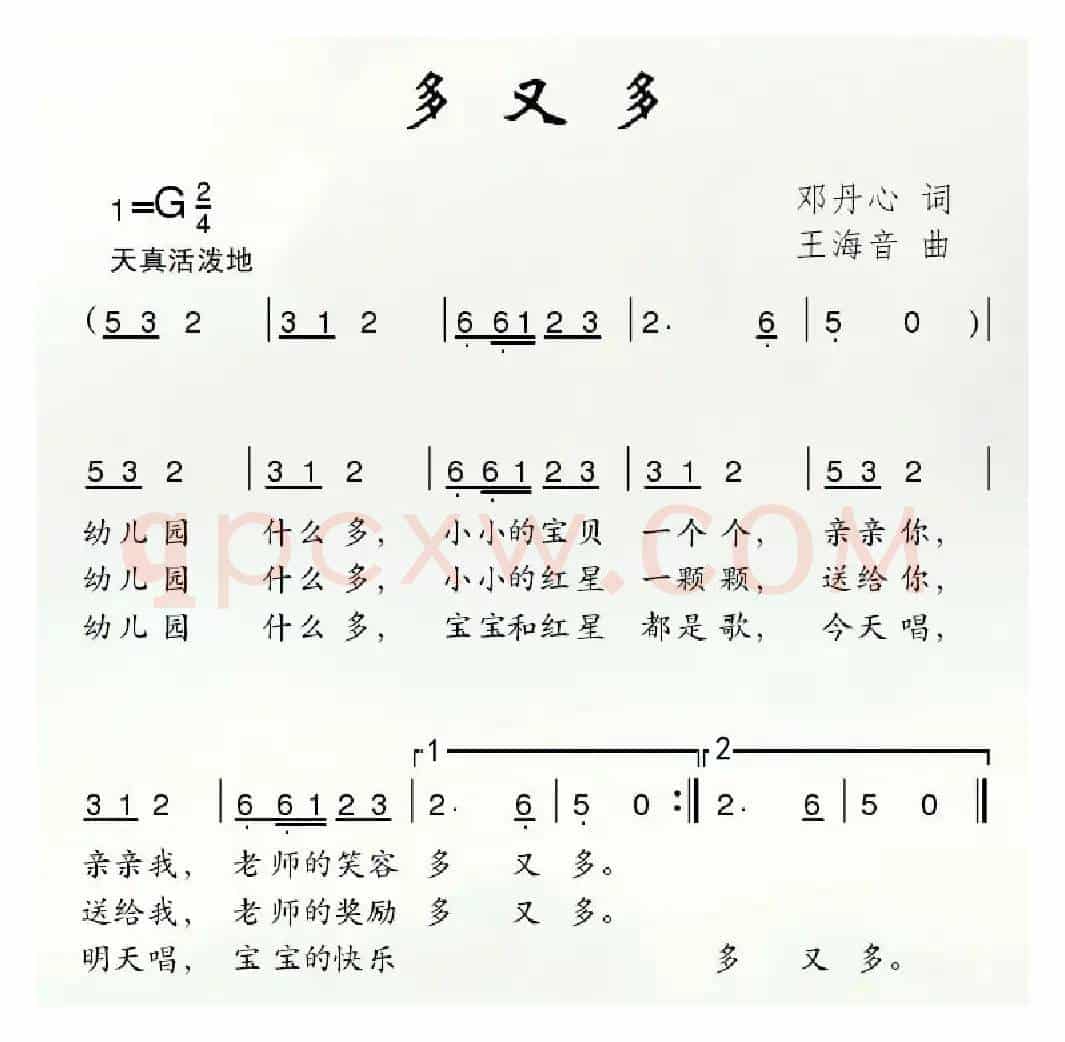 多又多
1=G 2/4
邓丹心 词
王海音 曲
天真活泼地
(5 3 2 | 3 1 2 | 6̣ 6̣ 1 2 3 | 2. 6̣ | 5̣ 0 )|
5 3 2 | 3 1 2 | 6̣ 6̣ 1 2 3 | 3 1 2 | 5 3 2 |
幼儿园 什么多, 小小的宝贝 一个个, 亲亲你,
幼儿园 什么多, 小小的红星 一颗颗, 送给你,
幼儿园 什么多, 宝宝和红星 都是歌, 今天唱,
qpcxw.com
1 2
3 1 2 | 6̣ 6̣ 1 2 3 | 2. 6̣ | 5̣ 0 :‖ 2. 6 | 5 0 ‖
亲亲我, 老师的笑容 多 又 多。
送给我, 老师的奖励 多 又 多。
明天唱, 宝宝的快乐 多 又 多。